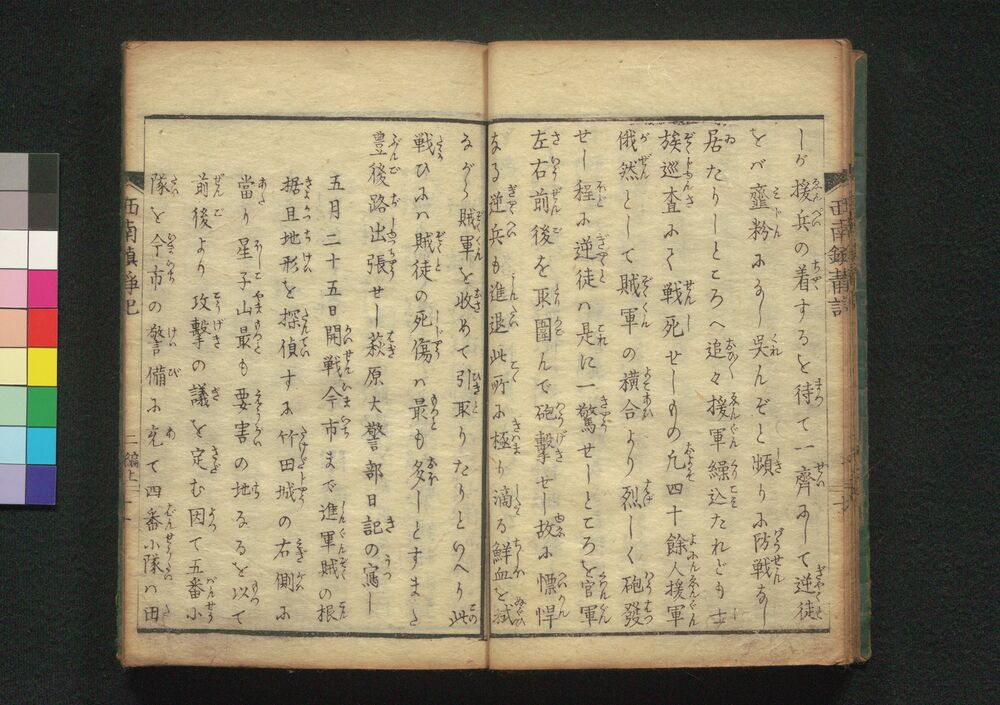 しが援兵の着するを待て一齊にして逆徒
をバ齏粉になし呉んぞと頻りに防戦なし
居たりしところへ追々援軍繰込たれども士
族巡査にて戦死せしもの凡四十餘人援軍
俄然として賊軍の横合より烈しく砲發
せし程に逆徒ハ是に一驚せしところを官軍
左右前後を取圍んで砲撃せし故に慓悍
なる逆兵も進退此所に極り滴る鮮血を拭
ながら賊軍を收めて引取りたりといへり此
戦ひにハ賊徒の死傷ハ最も多しとすまた
豐後路出張せし萩原大警部日記の寫し
五月二十五日開戦今市まで進軍賊の根
据且地形を探偵すに竹田城の右側に
當り星子山最も要害の地なるを以て
前後より攻撃の議を定む因て五番小
隊を今市の警備に充て四番小隊ハ田
西南鎮静記
二編上